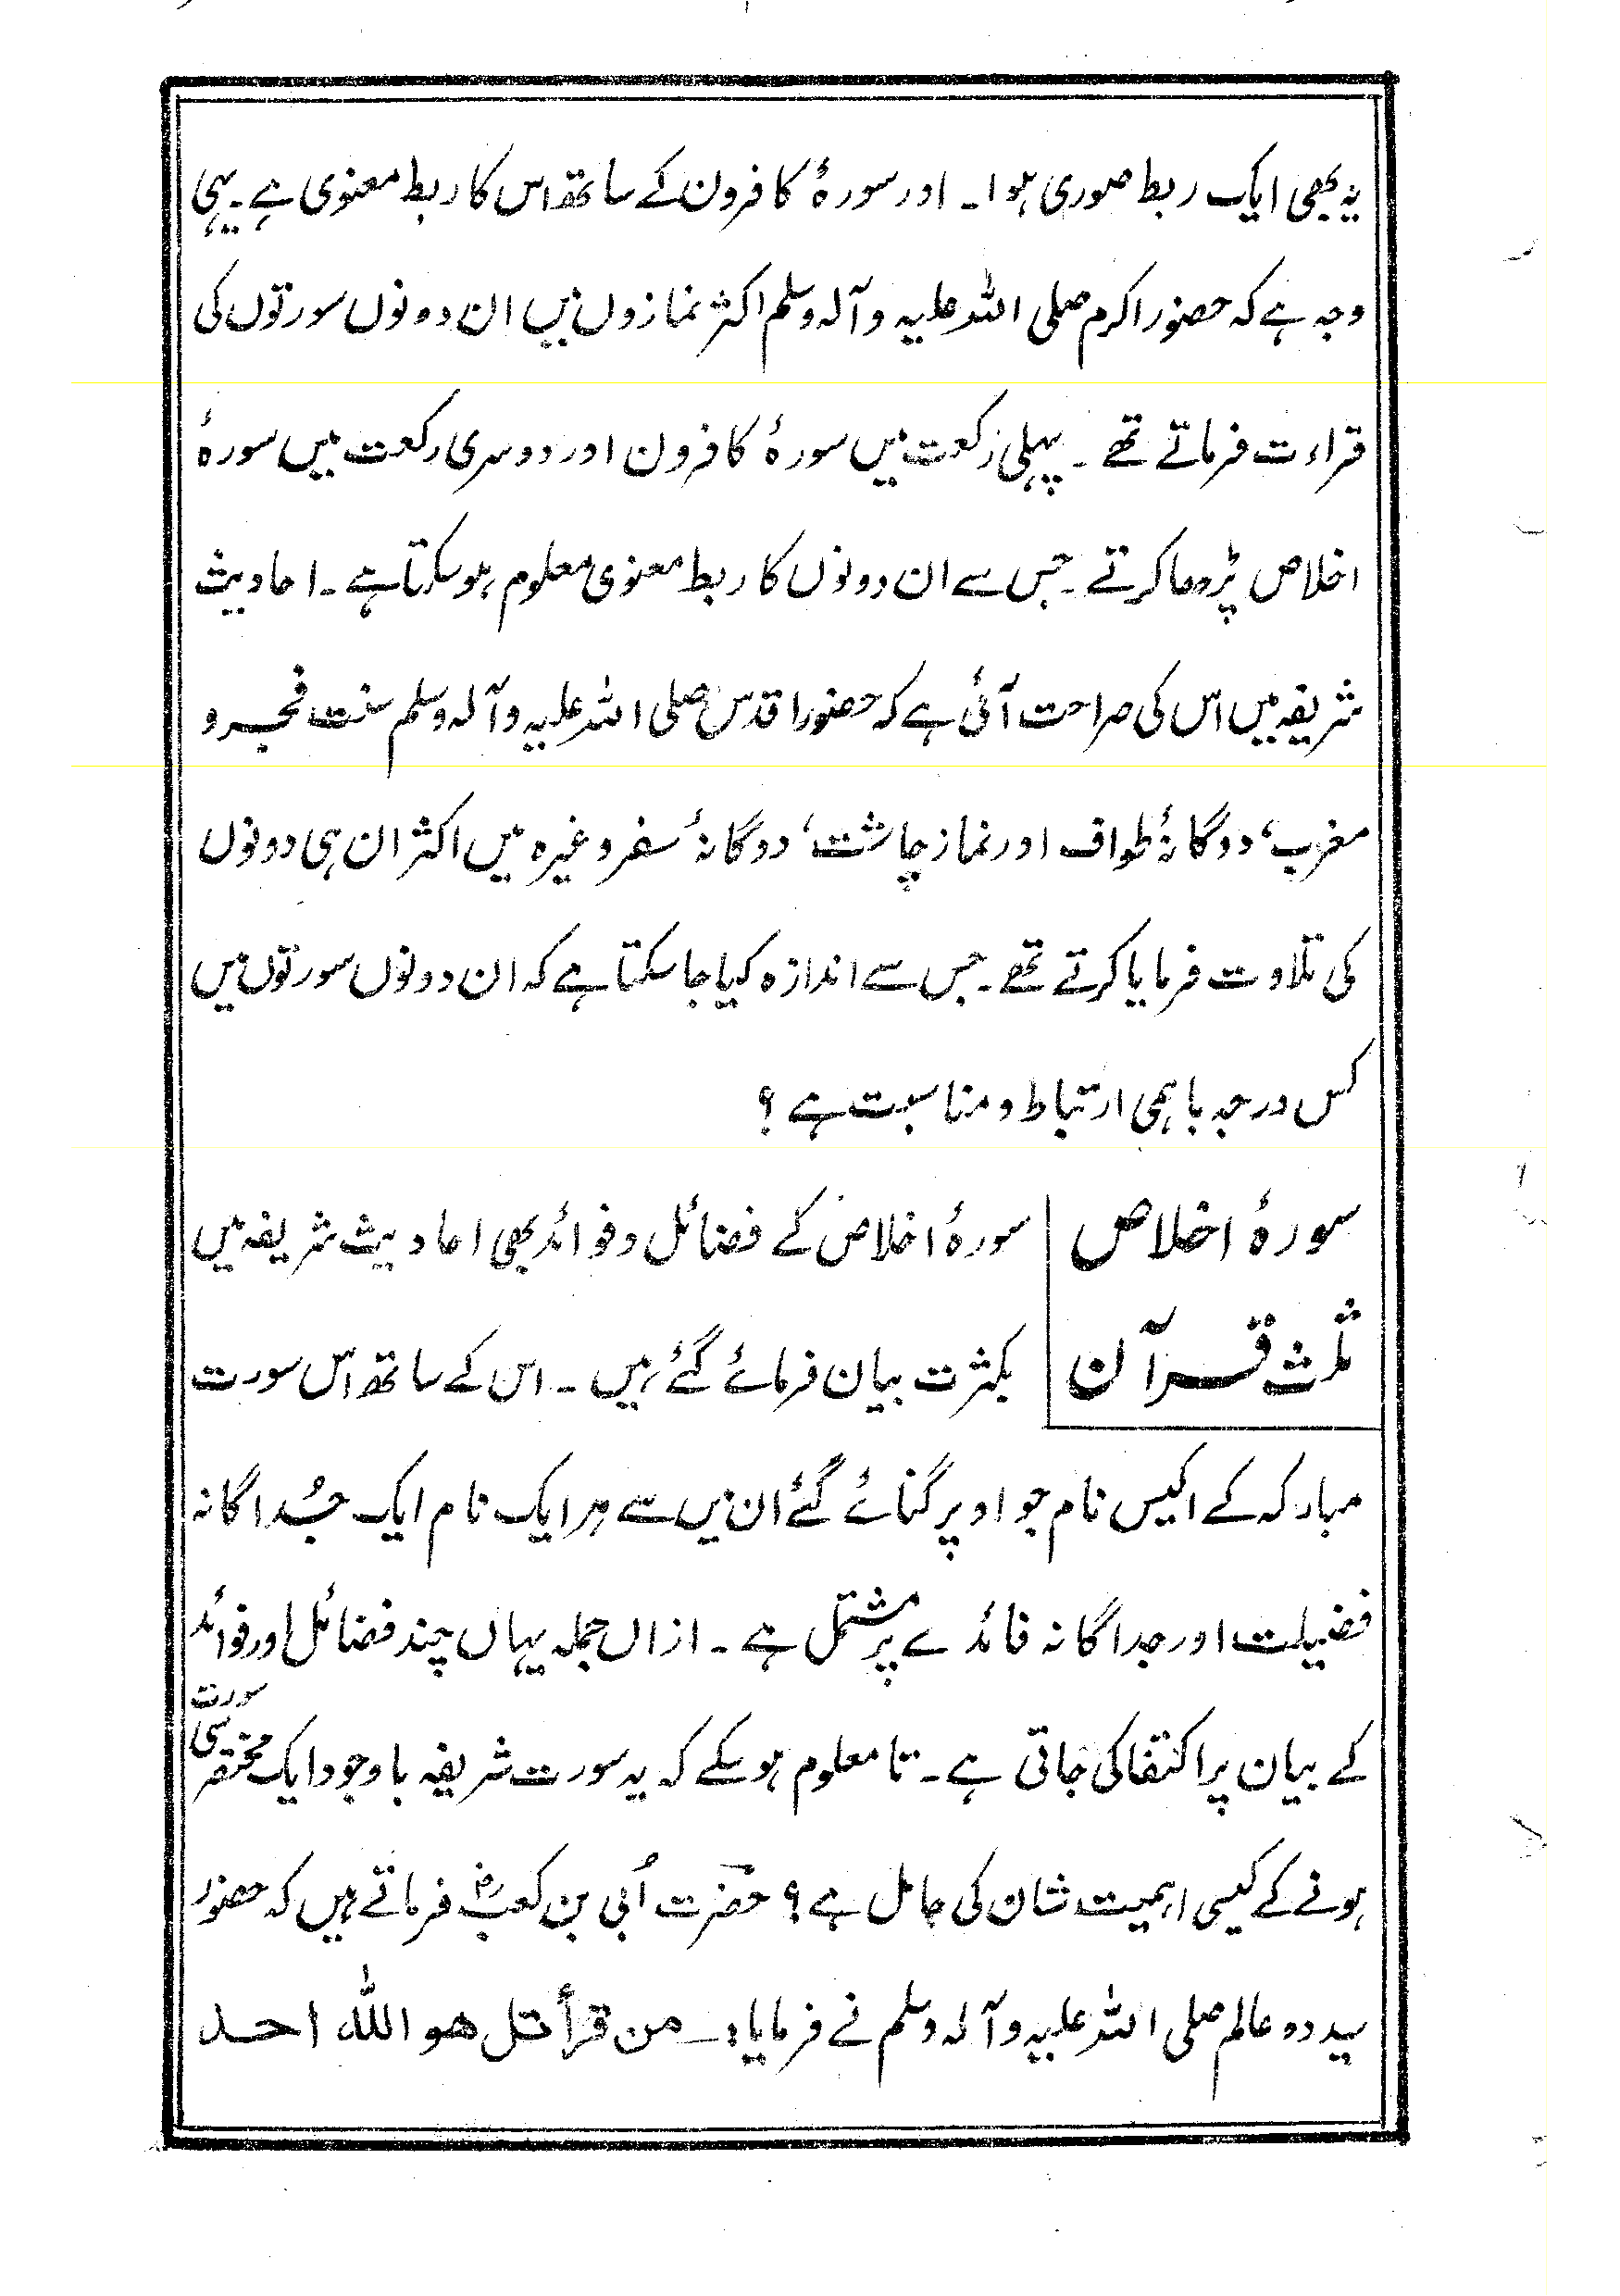 یہ بھی ایک ربط صوری ہوا۔ اور سورۂ کافرون کے ساتھ اس کا ربط معنوی ہے۔ یہی
وجہ ہے کہ حضور اکرم صلی اللہ علیہ وآلہ وسلم اکثر نمازوں میں ان دونوں سورتوں کی
قراءت فرماتے تھے۔ پہلی رکعت میں سورۂ کافرون اور دوسری رکعت میں سورۂ
اخلاص پڑھا کرتے۔ جس سے ان دونوں کا ربط معنوی معلوم ہو سکتا ہے۔ احادیث
شریفہ میں اس کی صراحت آئی ہے کہ حضور اقدس صلی اللہ علیہ وآلہ وسلم سنت فجر و
مغرب، دوگانۂ طواف اور نماز چاشت، دوگانۂ سفر وغیرہ میں اکثر ان ہی دونوں
کی تلاوت فرمایا کرتے تھے۔ جس سے اندازہ کیا جا سکتا ہے کہ ان دونوں سورتوں میں
کس درجہ باہمی ارتباط و مناسبت ہے؟
سورۂ اخلاص
ثلث قرآن
سورۂ اخلاص کے فضائل و فوائد بھی احادیث شریفہ میں
بکثرت بیان فرمائے گئے ہیں۔ اس کے ساتھ اس سورت
مبارکہ کے اکیس نام جو اوپر گنائے گئے ان میں سے ہر ایک نام ایک جُداگانہ
فضیلت اور جداگانہ فائدے پر مشتمل ہے۔ ازاں جملہ یہاں چند فضائل اور فوائد
کے بیان پر اکتفا کی جاتی ہے۔ تا معلوم ہو سکے کہ یہ سورت شریفہ باوجود ایک مختصر سی سورت
ہونے کے کیسی اہمیت شان کی حامل ہے؟ حضرت اُبی بن کعبؓ فرماتے ہیں کہ حضور
سید دو عالم صلی اللہ علیہ وآلہ وسلم نے فرمایا:۔ من قرأ قل هو الله احد